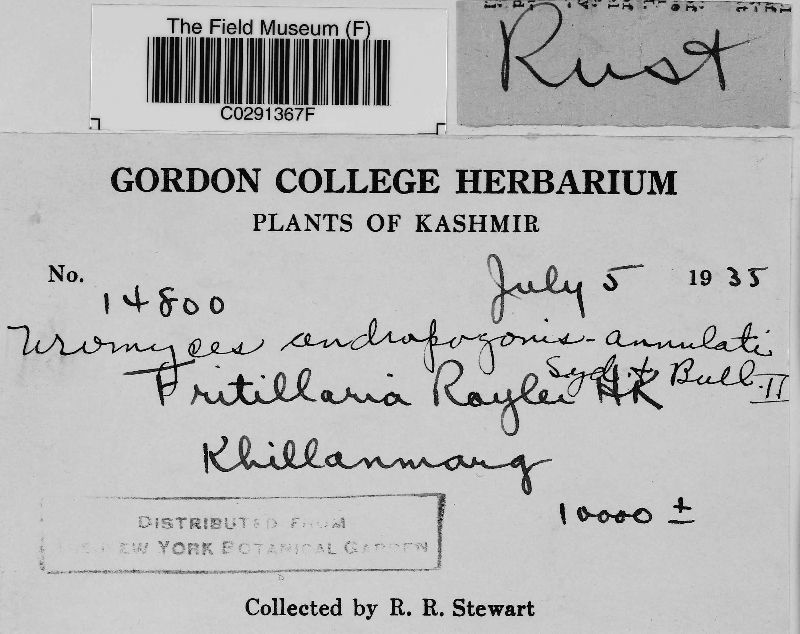 The Field Museum (F)
C0291367F
Rust
GORDON COLLEGE HERBARIUM
PLANTS OF KASHMIR
No. 14800 July 5 1935
Uromyces andropogonis-annulati
Syd. & Butl. II
Fritillaria Roylei HK
Khillanmarg
10000 ±
DISTRIBUTED FROM
THE NEW YORK BOTANICAL GARDEN
Collected by R. R. Stewart